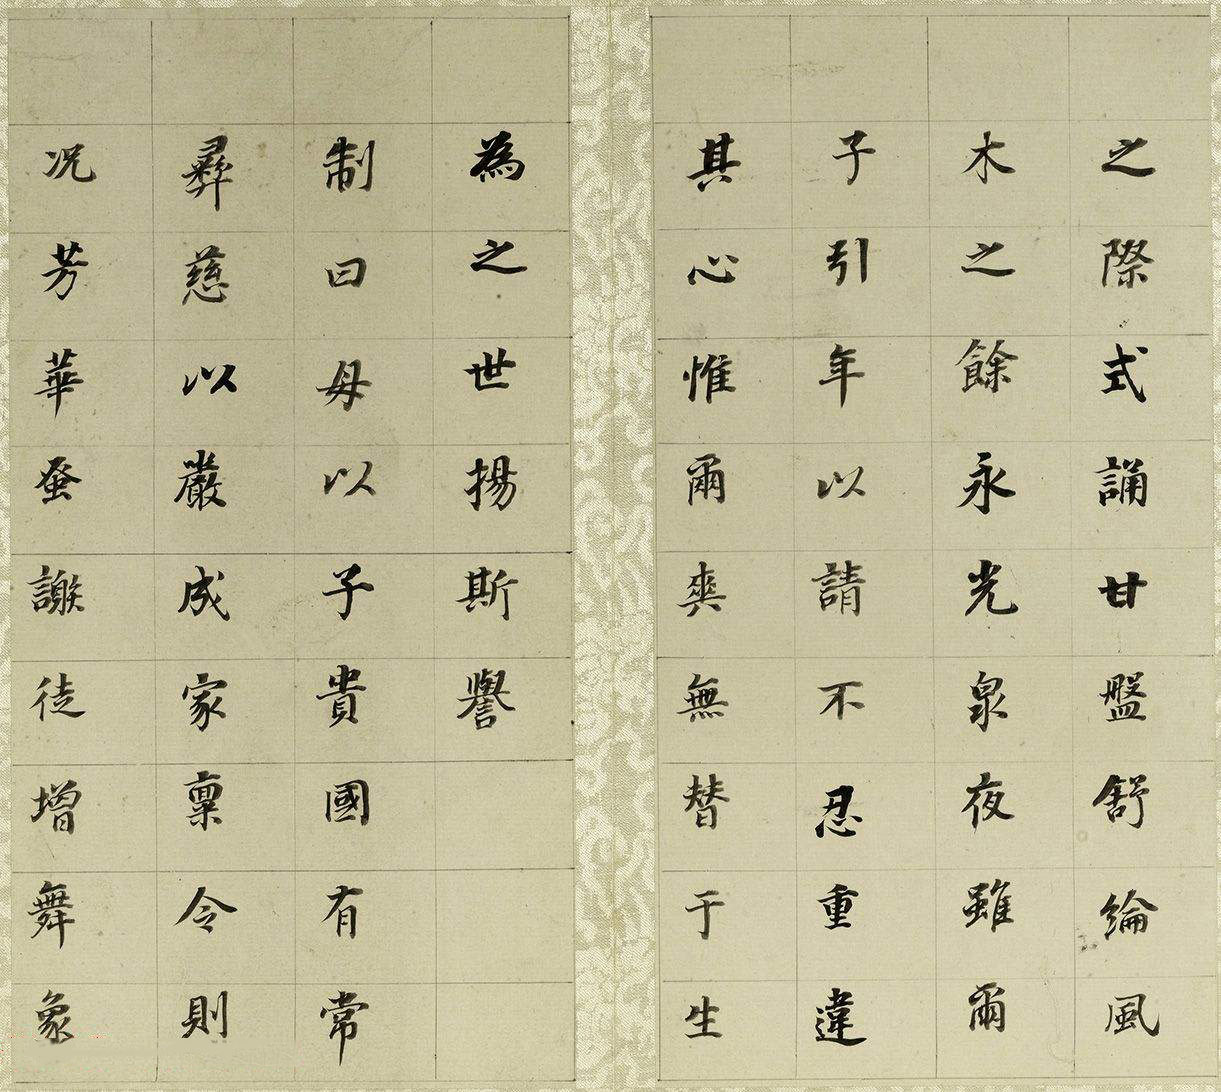 之際式誦甘盤舒綸風
木之餘永光泉夜雖爾
子引年以請不忍重違
其心惟爾爽無替于生
為之世揚斯譽
制曰母以子貴國有常
彞慈以嚴成家稟令則
況芳華蚤謝徒增舞象